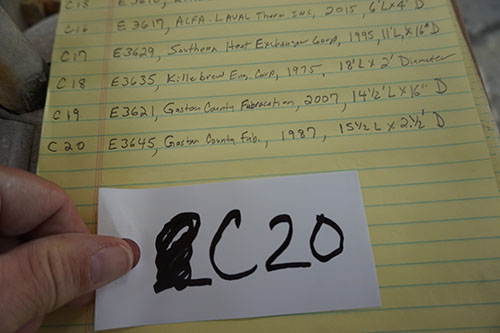 C15 E3610,
C16 E3617, ALFA-LAVAL Therm INC, 2015, 6'L X 4' D
C17 E3629, Southern Heat Exchanger Corp, 1995, 11'L, X 16" D
C18 E3635, Killebrew Eng. Corp, 1975, 18'L X 2' Diameter
C19 E3621, Gaston County Fabrication, 2007, 14 1/2' L X 16" D
C20 E3645, Gaston County Fab., 1987, 15 1/2 L X 2 1/2' D
C20